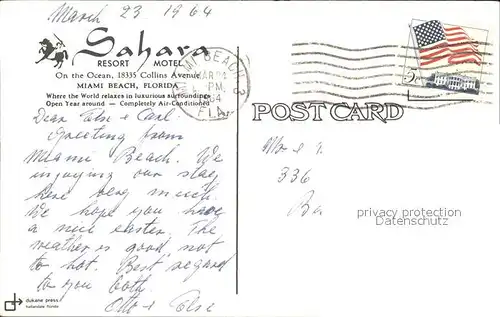 March 23 1964
Sahara
RESORT MOTEL
On the Ocean, 18335 Collins Avenue
MIAMI BEACH, FLORIDA
Where the World relaxes in luxurious surroundings
Open Year around — Completely Air-Conditioned
MIAMI BEACH 3
PM
FLA.
POST CARD
Dear Else & Carl
Greeting from
Miami Beach. We
injoying our stay
here very much.
We hope you have
a nice easter. The
weather is good not
to hot. Best regard
to you both.
Otto & Else
336
privacy protection
Datenschutz
dukane press
hollandale florida